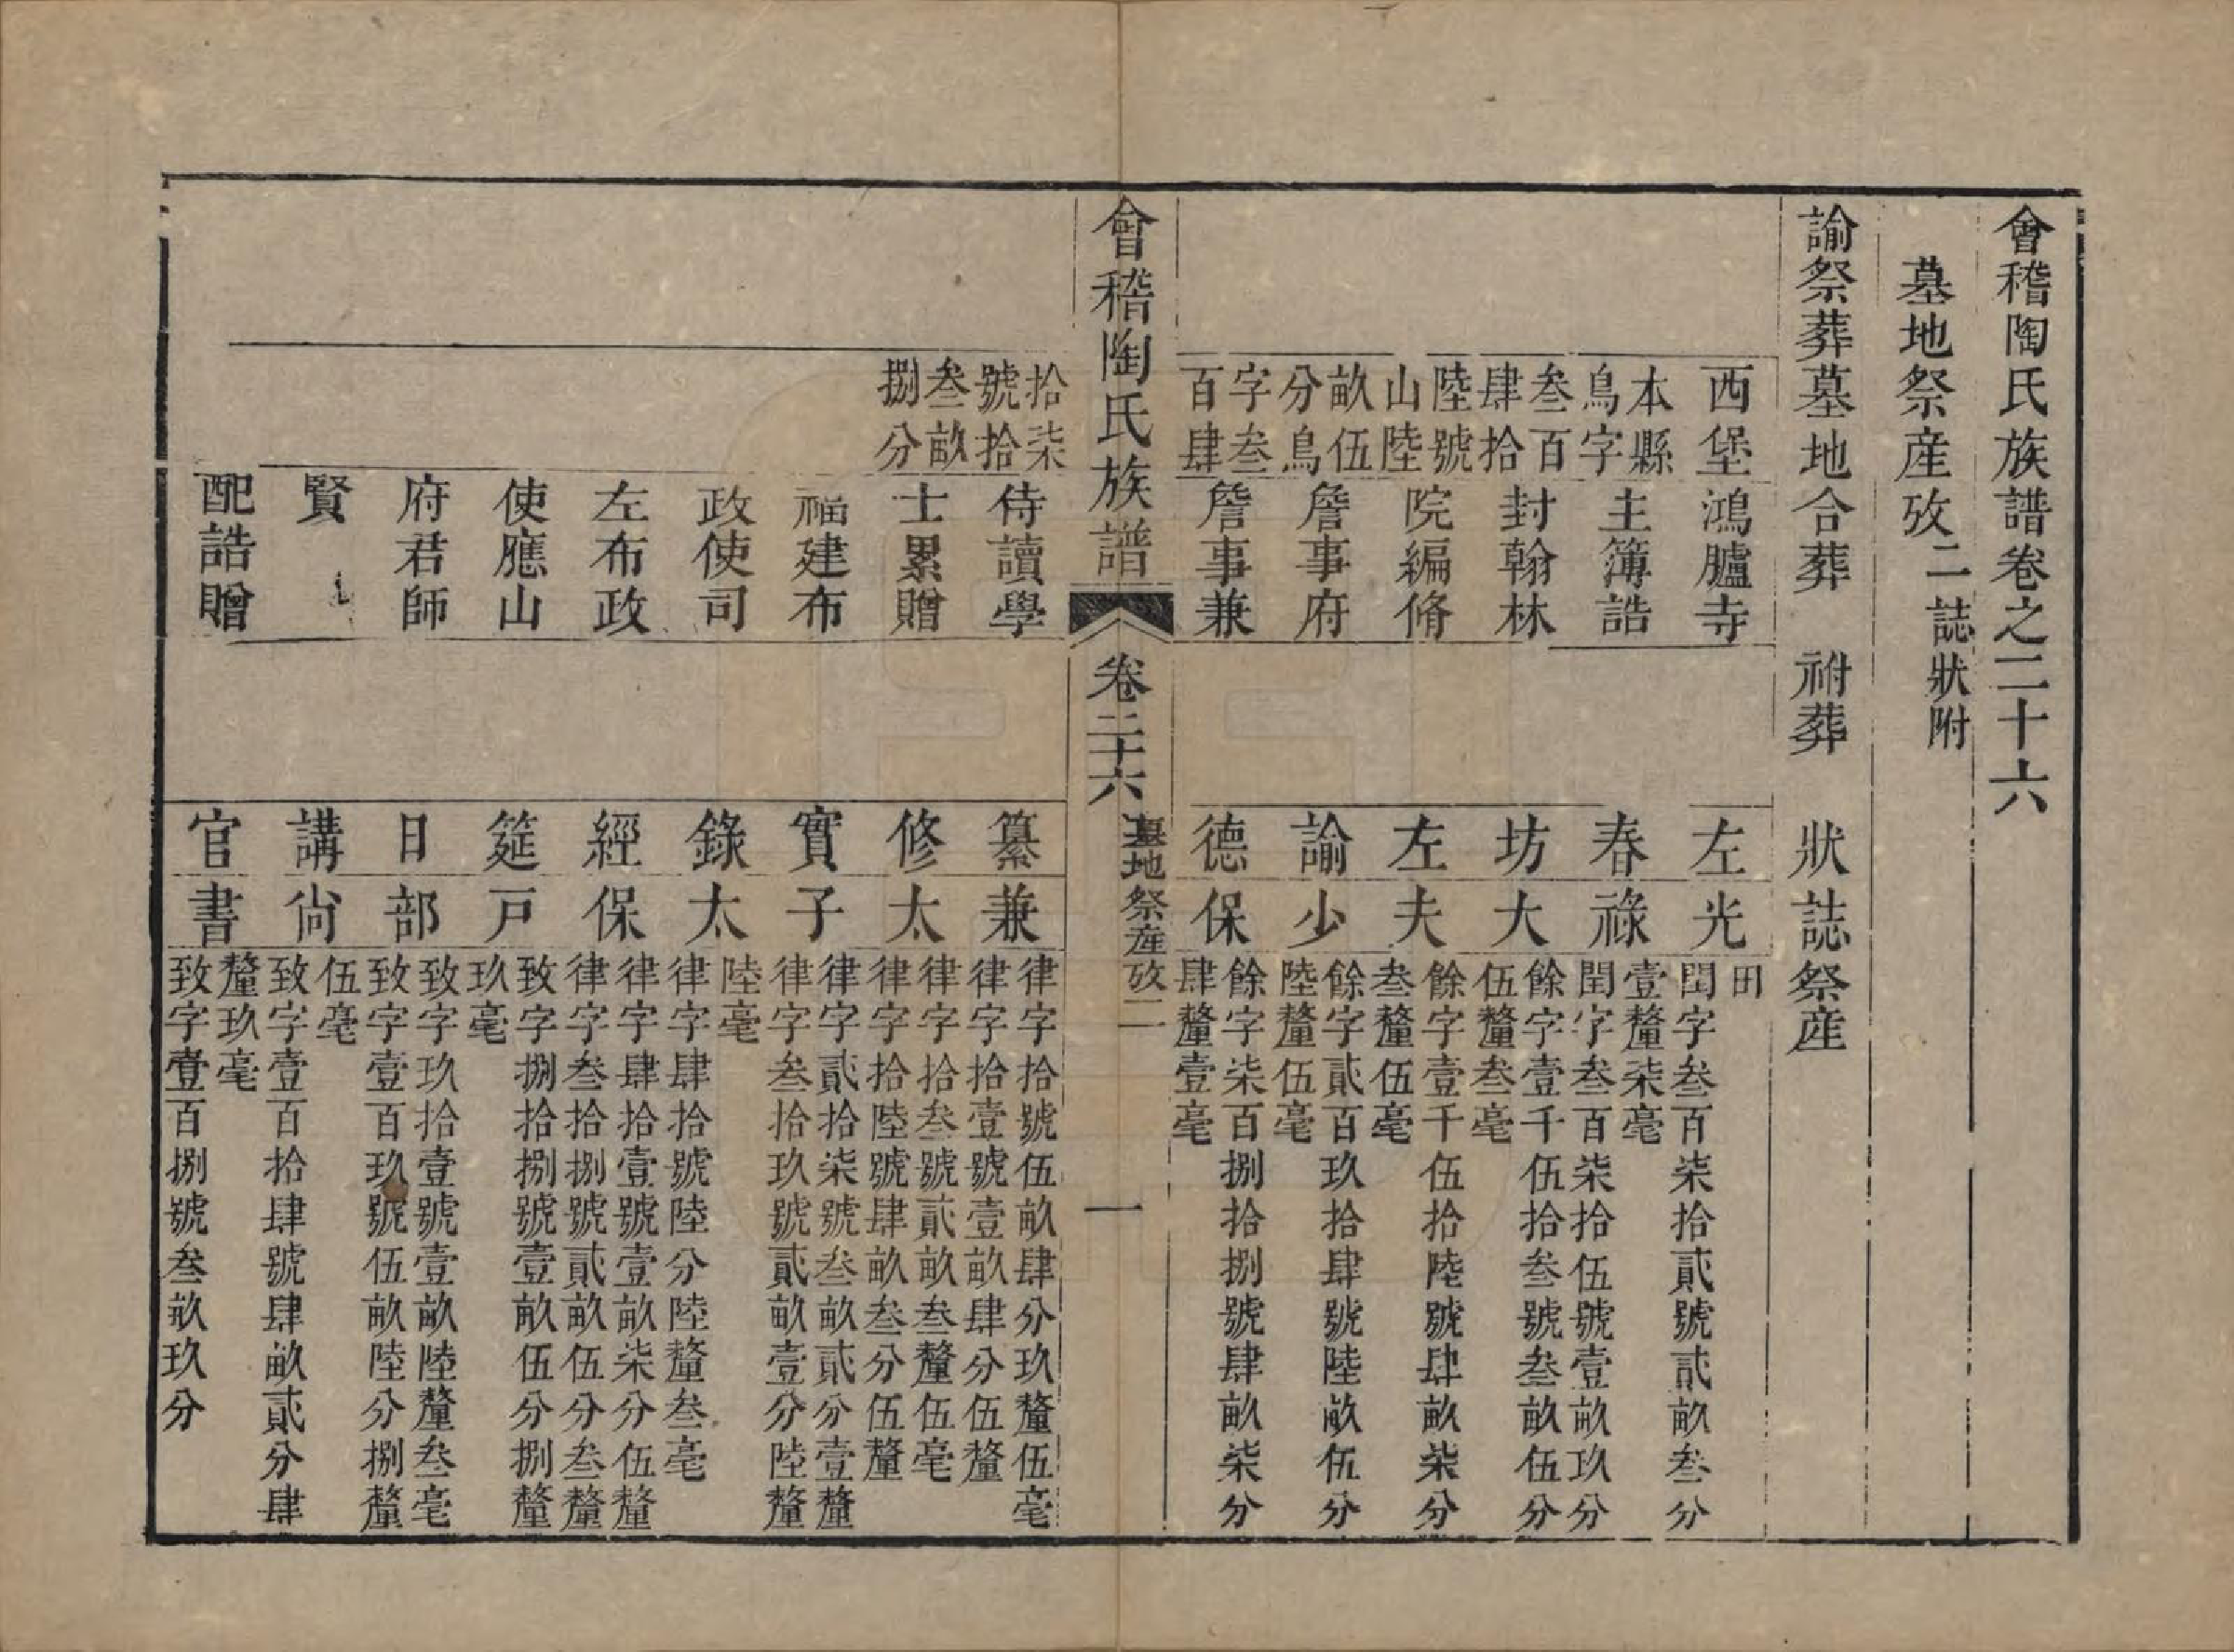 會稽陶氏族譜卷之二十六
墓地祭産攷二誌狀附
諭祭葬墓地合葬 祔葬 狀誌祭産
西堡
本縣
鳥字
叁百
肆拾
陸號
山陸
畝伍
分鳥
字叁
百肆
鴻臚寺
主簿誥
封翰林
院編脩
詹事府
詹事兼
左
春
坊
左
諭
德
光
祿
大
夫
少
保
田
閏字叁百柒拾貳號貳畝叁分
壹釐柒毫
閏字叁百柒拾伍號壹畝玖分
餘字壹千伍拾叁號叁畝伍分
伍釐叁毫
餘字壹千伍拾陸號肆畝柒分
叁釐伍毫
餘字貳百玖拾肆號陸畝伍分
陸釐伍毫
餘字柒百捌拾捌號肆畝柒分
肆釐壹毫
會稽陶氏族譜 卷二十六 墓地祭産攷二 一
拾柒
號拾
叁畝
捌分
侍讀學
士累贈
福建布
政使司
左布政
使應山
府君師
賢
配誥贈
纂
修
實
錄
經
筵
日
講
官
兼
太
子
太
保
戸
部
尙
書
律字拾號伍畝肆分玖釐伍毫
律字拾壹號壹畝肆分伍釐
律字拾叁號貳畝叁釐伍毫
律字拾陸號肆畝叁分伍釐
律字貳拾柒號叁畝貳分壹釐
律字叁拾玖號貳畝壹分陸釐
陸毫
律字肆拾號陸分陸釐叁毫
律字肆拾壹號壹畝柒分伍釐
律字叁拾捌號貳畝伍分叁釐
致字捌拾捌號壹畝伍分捌釐
玖毫
致字玖拾壹號壹畝陸釐叁毫
致字壹百玖號伍畝陸分捌釐
伍毫
致字壹百拾肆號肆畝貳分肆
釐玖毫
致字壹百捌號叁畝玖分